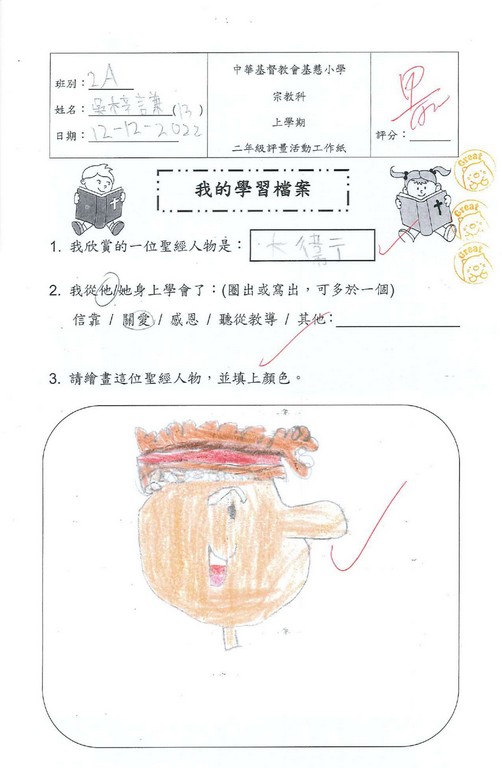 班別：2A
姓名：(13)
日期：12-12-2022
中華基督教會基慈小學
宗教科
上學期
二年級評量活動工作紙
甲
評分：
Great
Great
Great
我的學習檔案
1. 我欣賞的一位聖經人物是：大衛
2. 我從他/她身上學會了：(圈出或寫出，可多於一個)
信靠 / 關愛 / 感恩 / 聽從教導 / 其他：
3. 請繪畫這位聖經人物，並填上顏色。